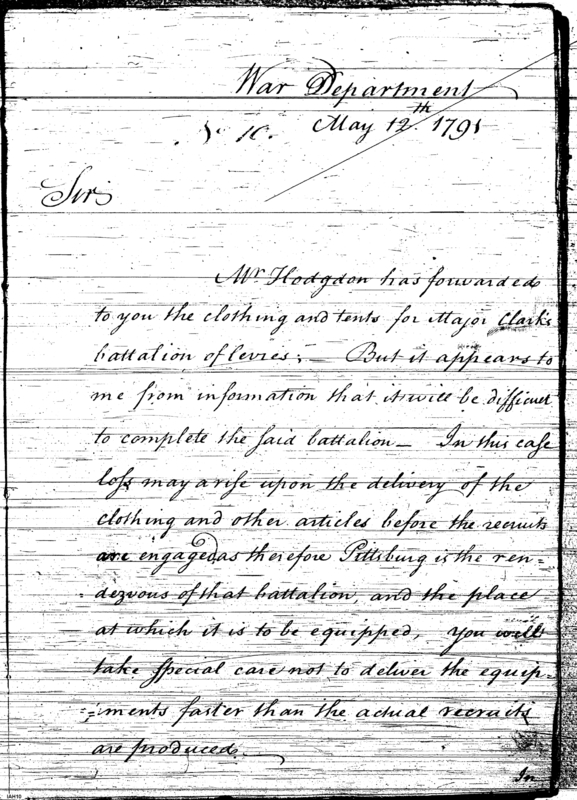 War Department
May 12th. 1791
Sir
Mr Hodgdon has forwarded
to you the clothing and tents for Major Clark's
battalion of levies; — But it appears to
me from information that it will be difficult
to complete the said battalion — In this case
loss may arise upon the delivery of the
clothing and other articles before the recruits
are engaged, as therefore Pittsburg is the ren=
=dezvous of that battalion, and the place
at which it is to be equipped, you will
take special care not to deliver the equip=
=ments faster than the actual recruits
are produced. —
In